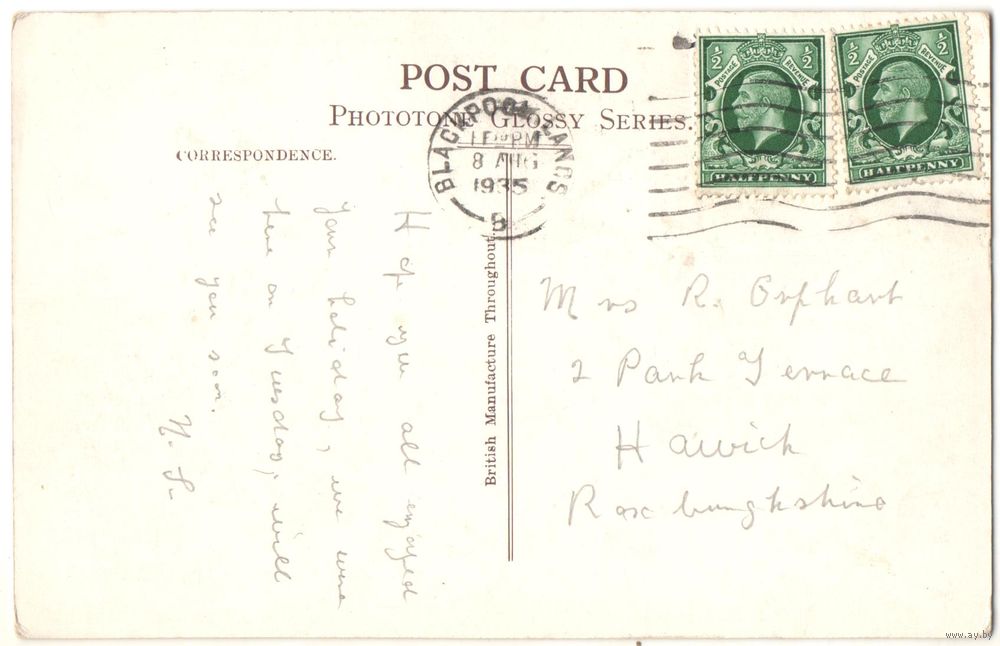 POST CARD
PHOTOTONE GLOSSY SERIES.
CORRESPONDENCE.
BLACKPOOL LANCS
PM
8 AUG
1935
B
½ ½
POSTAGE REVENUE
HALFPENNY
½ ½
POSTAGE REVENUE
HALFPENNY
Hope you all enjoyed
your holiday, we were
here on Tuesday, will
see you soon.
British Manufacture Throughout.
Mrs R. Orphant
2 Park Terrace
Hawick
Roxburghshire
www.ay.by